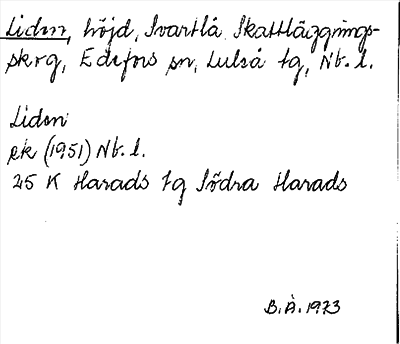 Liden, höjd, Svartlå Skattläggnings-
skrg, Edefors sn, Luleå tg, Nb. l.
Liden
ek (1951) Nb. l.
25 K Harads tg Södra Harads
B.Å. 1973